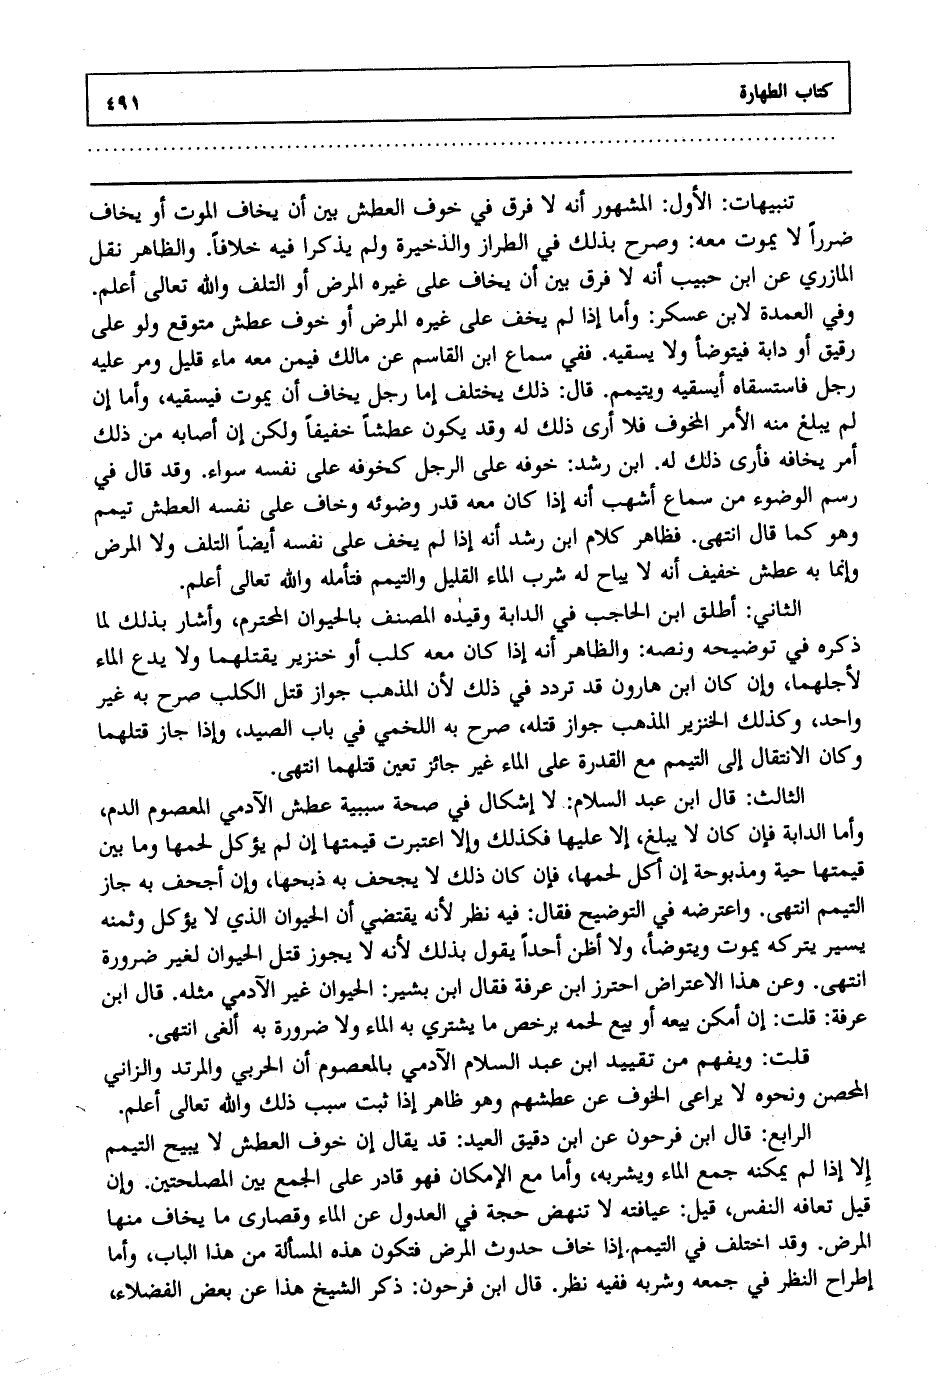 كتاب الطهارة
٤٩١
تنبيهات: الأول: المشهور أنه لا فرق في خوف العطش بين أن يخاف الموت أو يخاف
ضرراً لا يموت معه: وصرح بذلك في الطراز والذخيرة ولم يذكرا فيه خلافاً. والظاهر نقل
المازري عن ابن حبيب أنه لا فرق بين أن يخاف على غيره المرض أو التلف والله تعالى أعلم.
وفي العمدة لابن عسكر: وأما إذا لم يخف على غيره المرض أو خوف عطش متوقع ولو على
رقيق أو دابة فيتوضأ ولا يسقيه. ففي سماع ابن القاسم عن مالك فيمن معه ماء قليل ومر عليه
رجل فاستسقاه أيسقيه ويتيمم. قال: ذلك يختلف إما رجل يخاف أن يموت فيسقيه، وأما إن
لم يبلغ منه الأمر المخوف فلا أرى ذلك له وقد يكون عطشاً خفيفاً ولكن إن أصابه من ذلك
أمر يخافه فأرى ذلك له. ابن رشد: خوفه على الرجل كخوفه على نفسه سواء. وقد قال في
رسم الوضوء من سماع أشهب أنه إذا كان معه قدر وضوئه وخاف على نفسه العطش تيمم
وهو كما قال انتهى. فظاهر كلام ابن رشد أنه إذا لم يخف على نفسه أيضاً التلف ولا المرض
وإنما به عطش خفيف أنه لا يباح له شرب الماء القليل والتيمم فتأمله والله تعالى أعلم.
الثاني: أطلق ابن الحاجب في الدابة وقيده المصنف بالحيوان المحترم، وأشار بذلك لما
ذكره في توضيحه ونصه: والظاهر أنه إذا كان معه كلب أو خنزير يقتلهما ولا يدع الماء
لأجلهما، وإن كان ابن هارون قد تردد في ذلك لأن المذهب جواز قتل الكلب صرح به غير
واحد، وكذلك الخنزير المذهب جواز قتله، صرح به اللخمي في باب الصيد، وإذا جاز قتلهما
وكان الانتقال إلى التيمم مع القدرة على الماء غير جائز تعين قتلهما انتهى.
الثالث: قال ابن عبد السلام: لا إشكال في صحة سببية عطش الآدمي المعصوم الدم،
وأما الدابة فإن كان لا يبلغ، إلا عليها فكذلك وإلا اعتبرت قيمتها إن لم يؤكل لحمها وما بين
قيمتها حية ومذبوحة إن أكل لحمها، فإن كان ذلك لا يجحف به ذبحها، وإن أجحف به جاز
التيمم انتهى. واعترضه في التوضيح فقال: فيه نظر لأنه يقتضي أن الحيوان الذي لا يؤكل وثمنه
يسير يتركه يموت ويتوضأ، ولا أظن أحداً يقول بذلك لأنه لا يجوز قتل الحيوان لغير ضرورة
انتهى. وعن هذا الاعتراض احترز ابن عرفة فقال ابن بشير: الحيوان غير الآدمي مثله. قال ابن
عرفة: قلت: إن أمكن بيعه أو بيع لحمه برخص ما يشتري به الماء ولا ضرورة به ألغى انتهى.
قلت: ويفهم من تقييد ابن عبد السلام الآدمي بالمعصوم أن الحربي والمرتد والزاني
المحصن ونحوه لا يراعى الخوف عن عطشهم وهو ظاهر إذا ثبت سبب ذلك والله تعالى أعلم.
الرابع: قال ابن فرحون عن ابن دقيق العيد: قد يقال إن خوف العطش لا يبيح التيمم
إلا إذا لم يمكنه جمع الماء ويشربه، وأما مع الإمكان فهو قادر على الجمع بين المصلحتين. وإن
قيل تعافه النفس، قيل: عيافته لا تنهض حجة في العدول عن الماء وقصارى ما يخاف منها
المرض. وقد اختلف في التيمم.إذا خاف حدوث المرض فتكون هذه المسألة من هذا الباب، وأما
إطراح النظر في جمعه وشربه ففيه نظر. قال ابن فرحون: ذكر الشيخ هذا عن بعض الفضلاء،